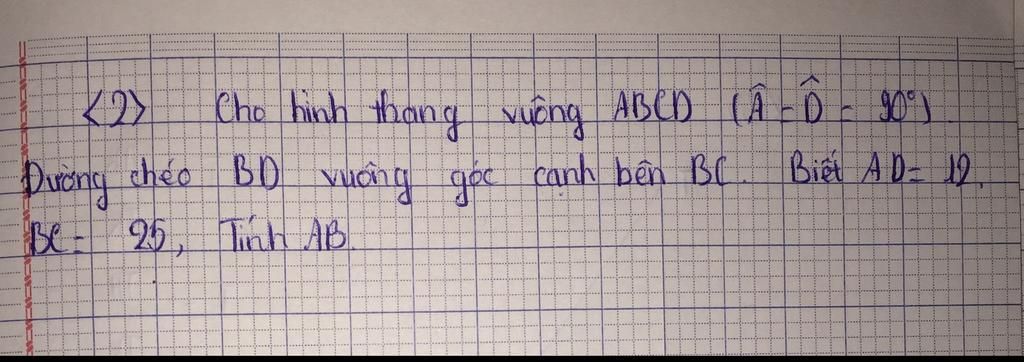 <2> Cho hình thang vuông ABCD (Â = D̂ = 90°).
Đường chéo BD vuông góc cạnh bên BC. Biết AD = 12,
BC = 25, Tính AB.